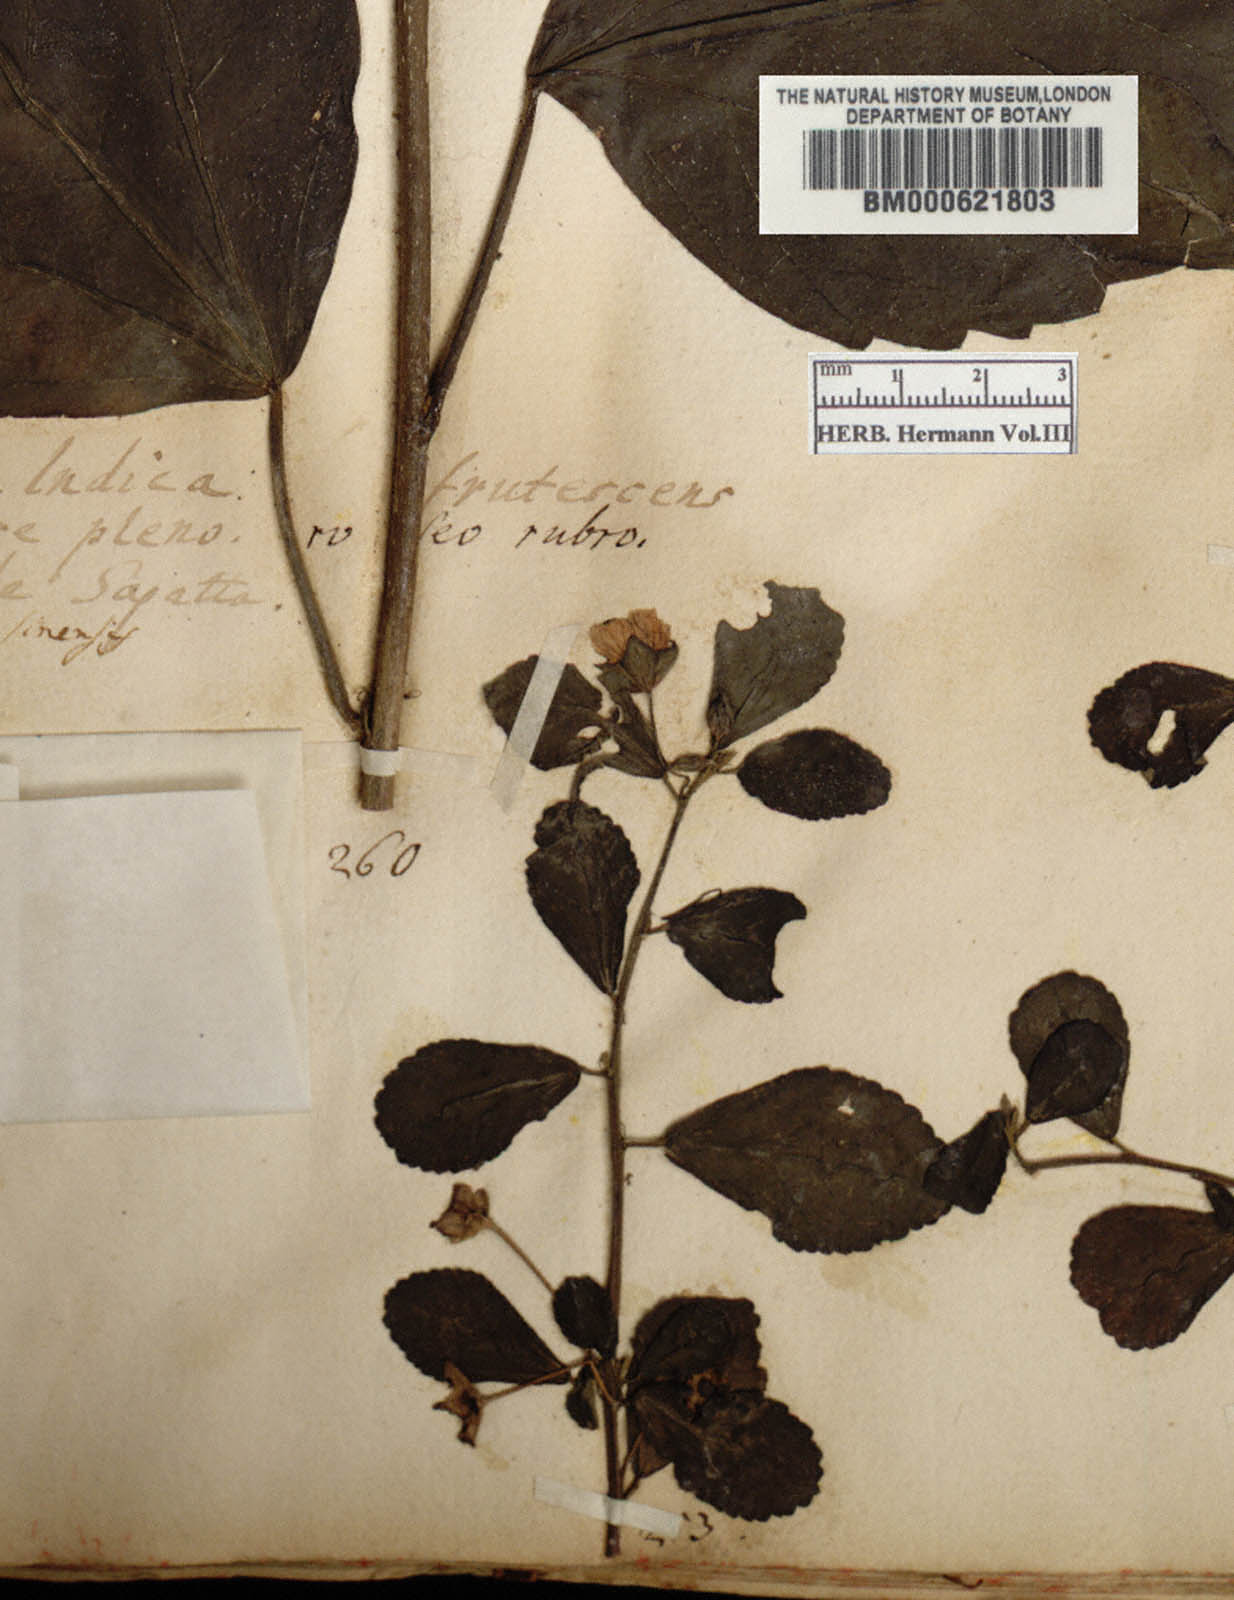 THE NATURAL HISTORY MUSEUM,LONDON
DEPARTMENT OF BOTANY
BM000621803
mm 1 2 3
HERB. Hermann Vol.III
Indica. frutescens
pleno. ro seo rubro.
Sapatta.
sinensis
260